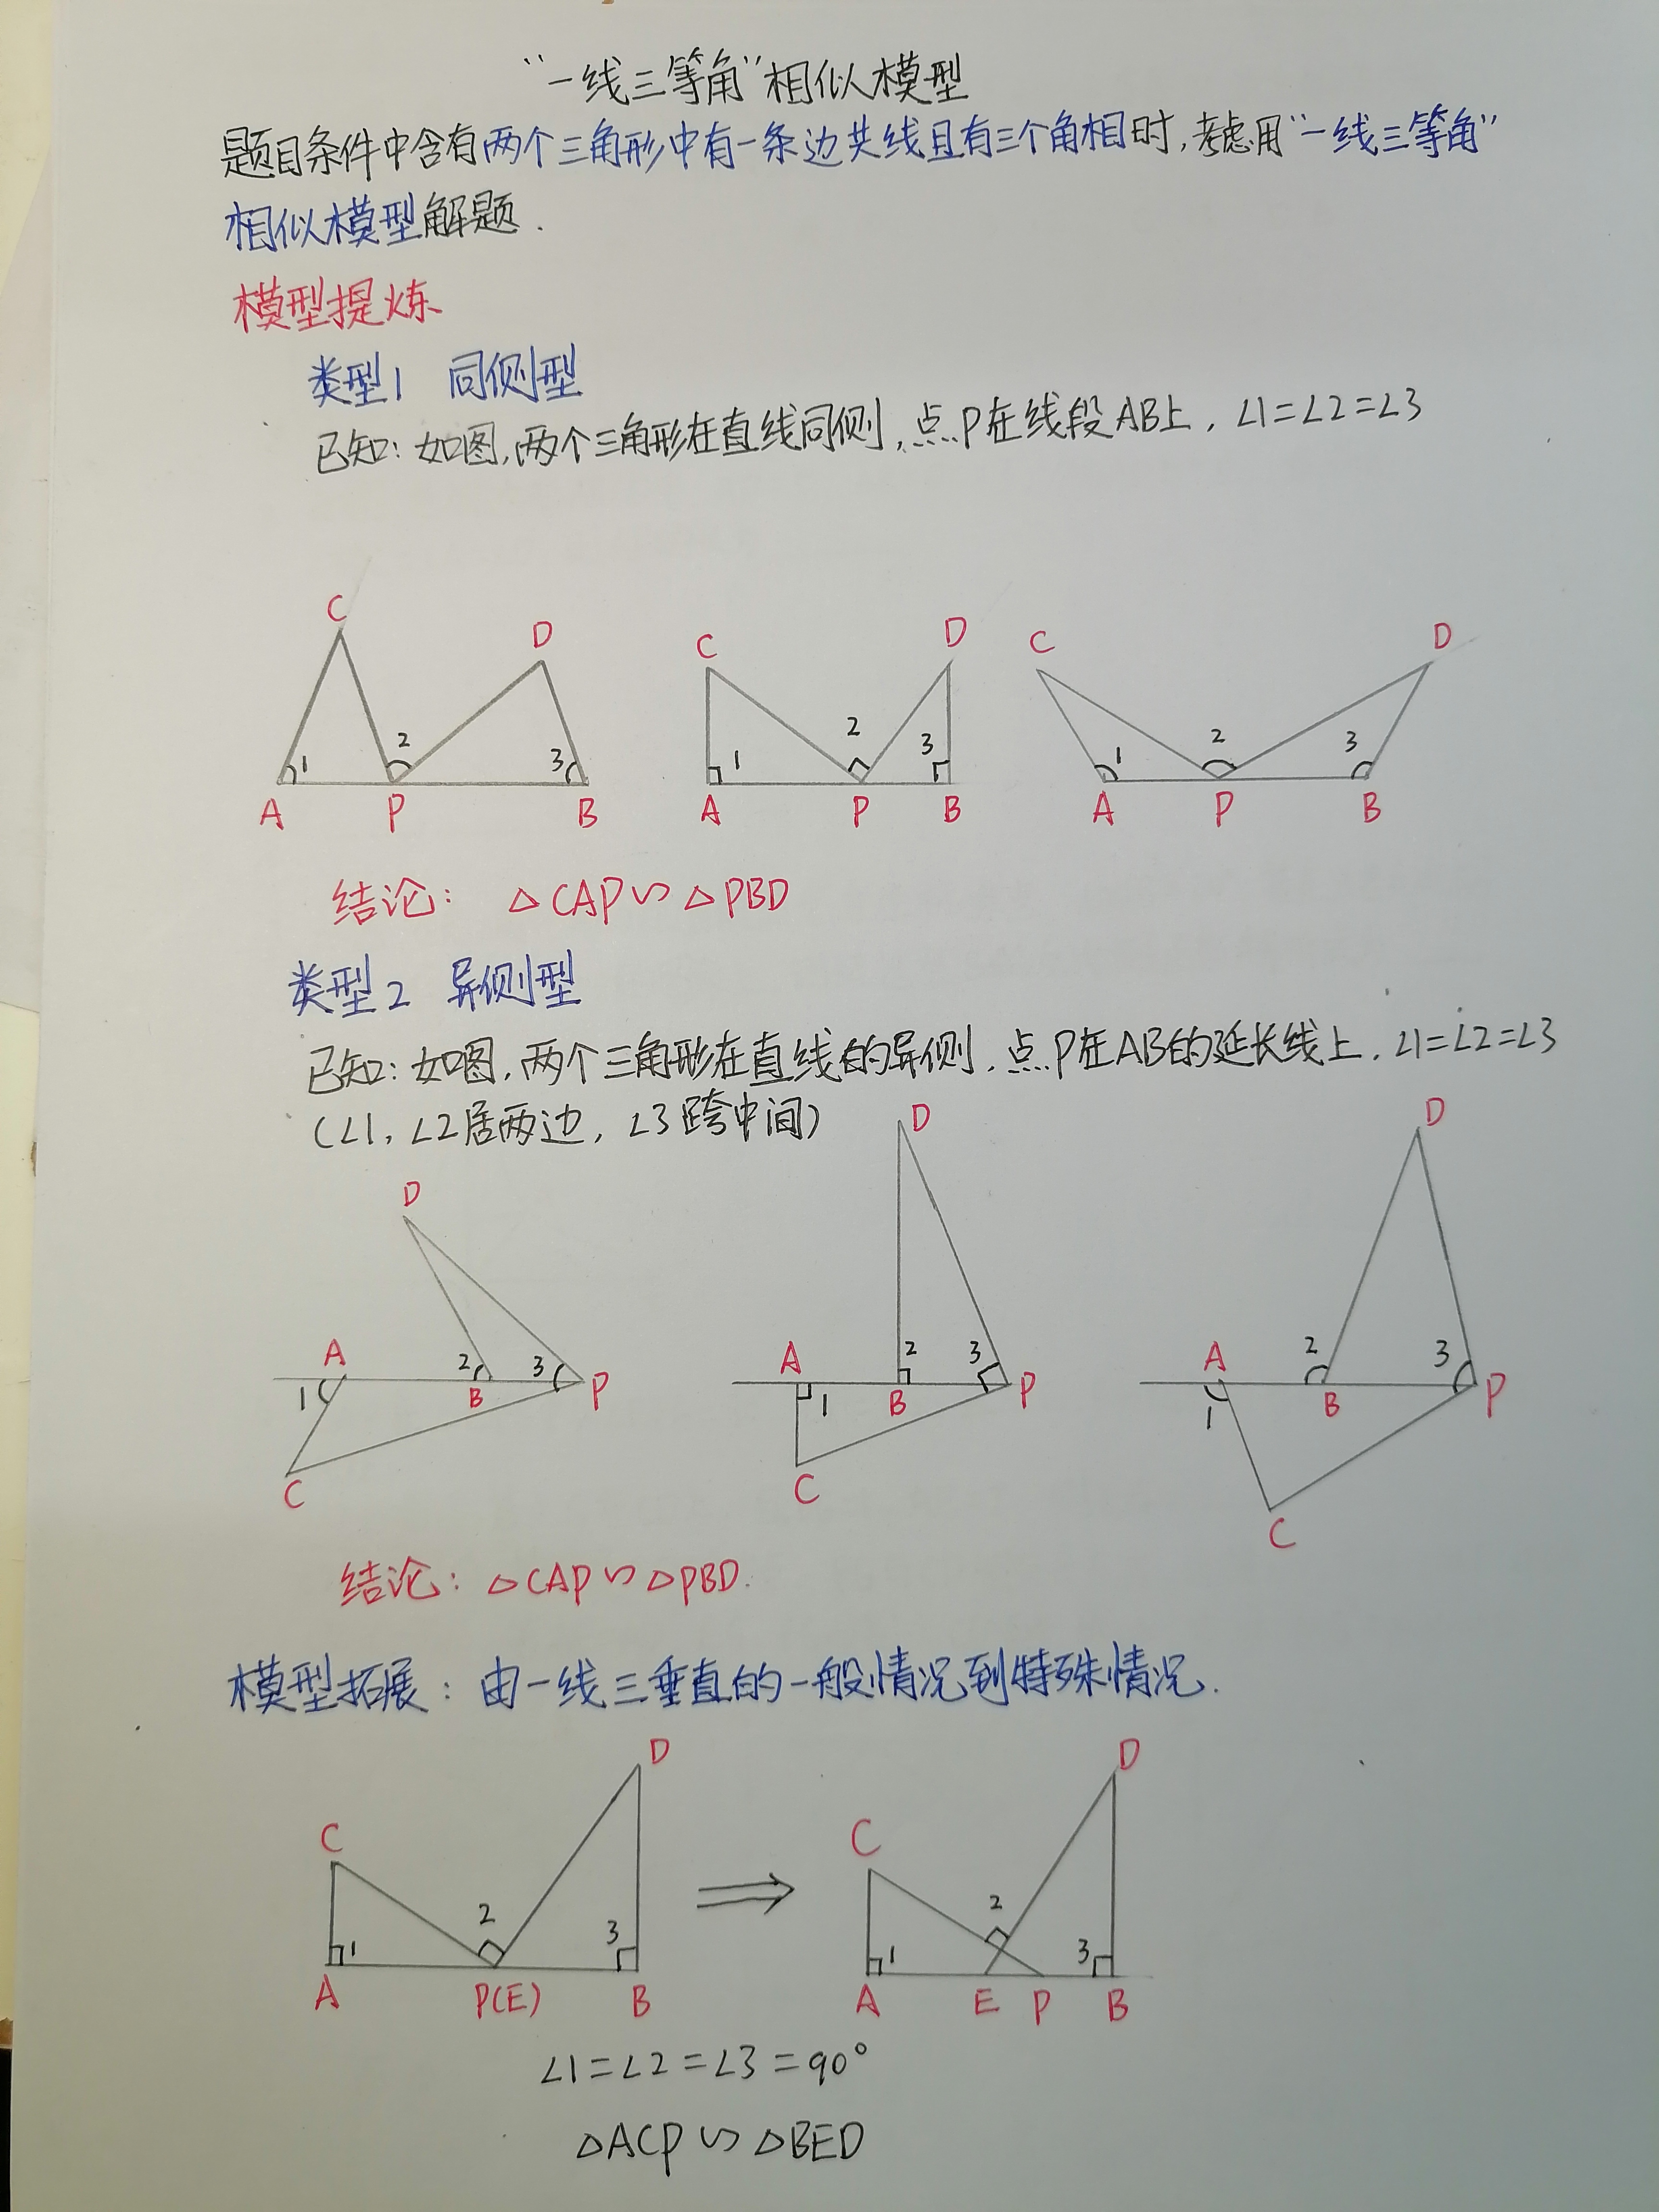 “一线三等角”相似模型
题目条件中含有两个三角形中有一条边共线且有三个角相时,考虑用“一线三等角”
相似模型解题.
模型提炼
类型1 同侧型
已知:如图,两个三角形在直线同侧,点P在线段AB上,∠1=∠2=∠3
C D C D C D
1 2 3 1 2 3 1 2 3
A P B A P B A P B
结论: △CAP∽△PBD
类型2 异侧型
已知:如图,两个三角形在直线的异侧,点P在AB的延长线上,∠1=∠2=∠3
(∠1,∠2居两边,∠3跨中间)
D D D
A 2 3 A 2 3 A 2 3
1 B P 1 B P 1 B P
C C C
结论:△CAP∽△PBD.
模型拓展:由一线三垂直的一般情况到特殊情况.
D D
C C
1 2 3 1 2 3
A P(E) B A E P B
∠1=∠2=∠3=90°
△ACP∽△BED